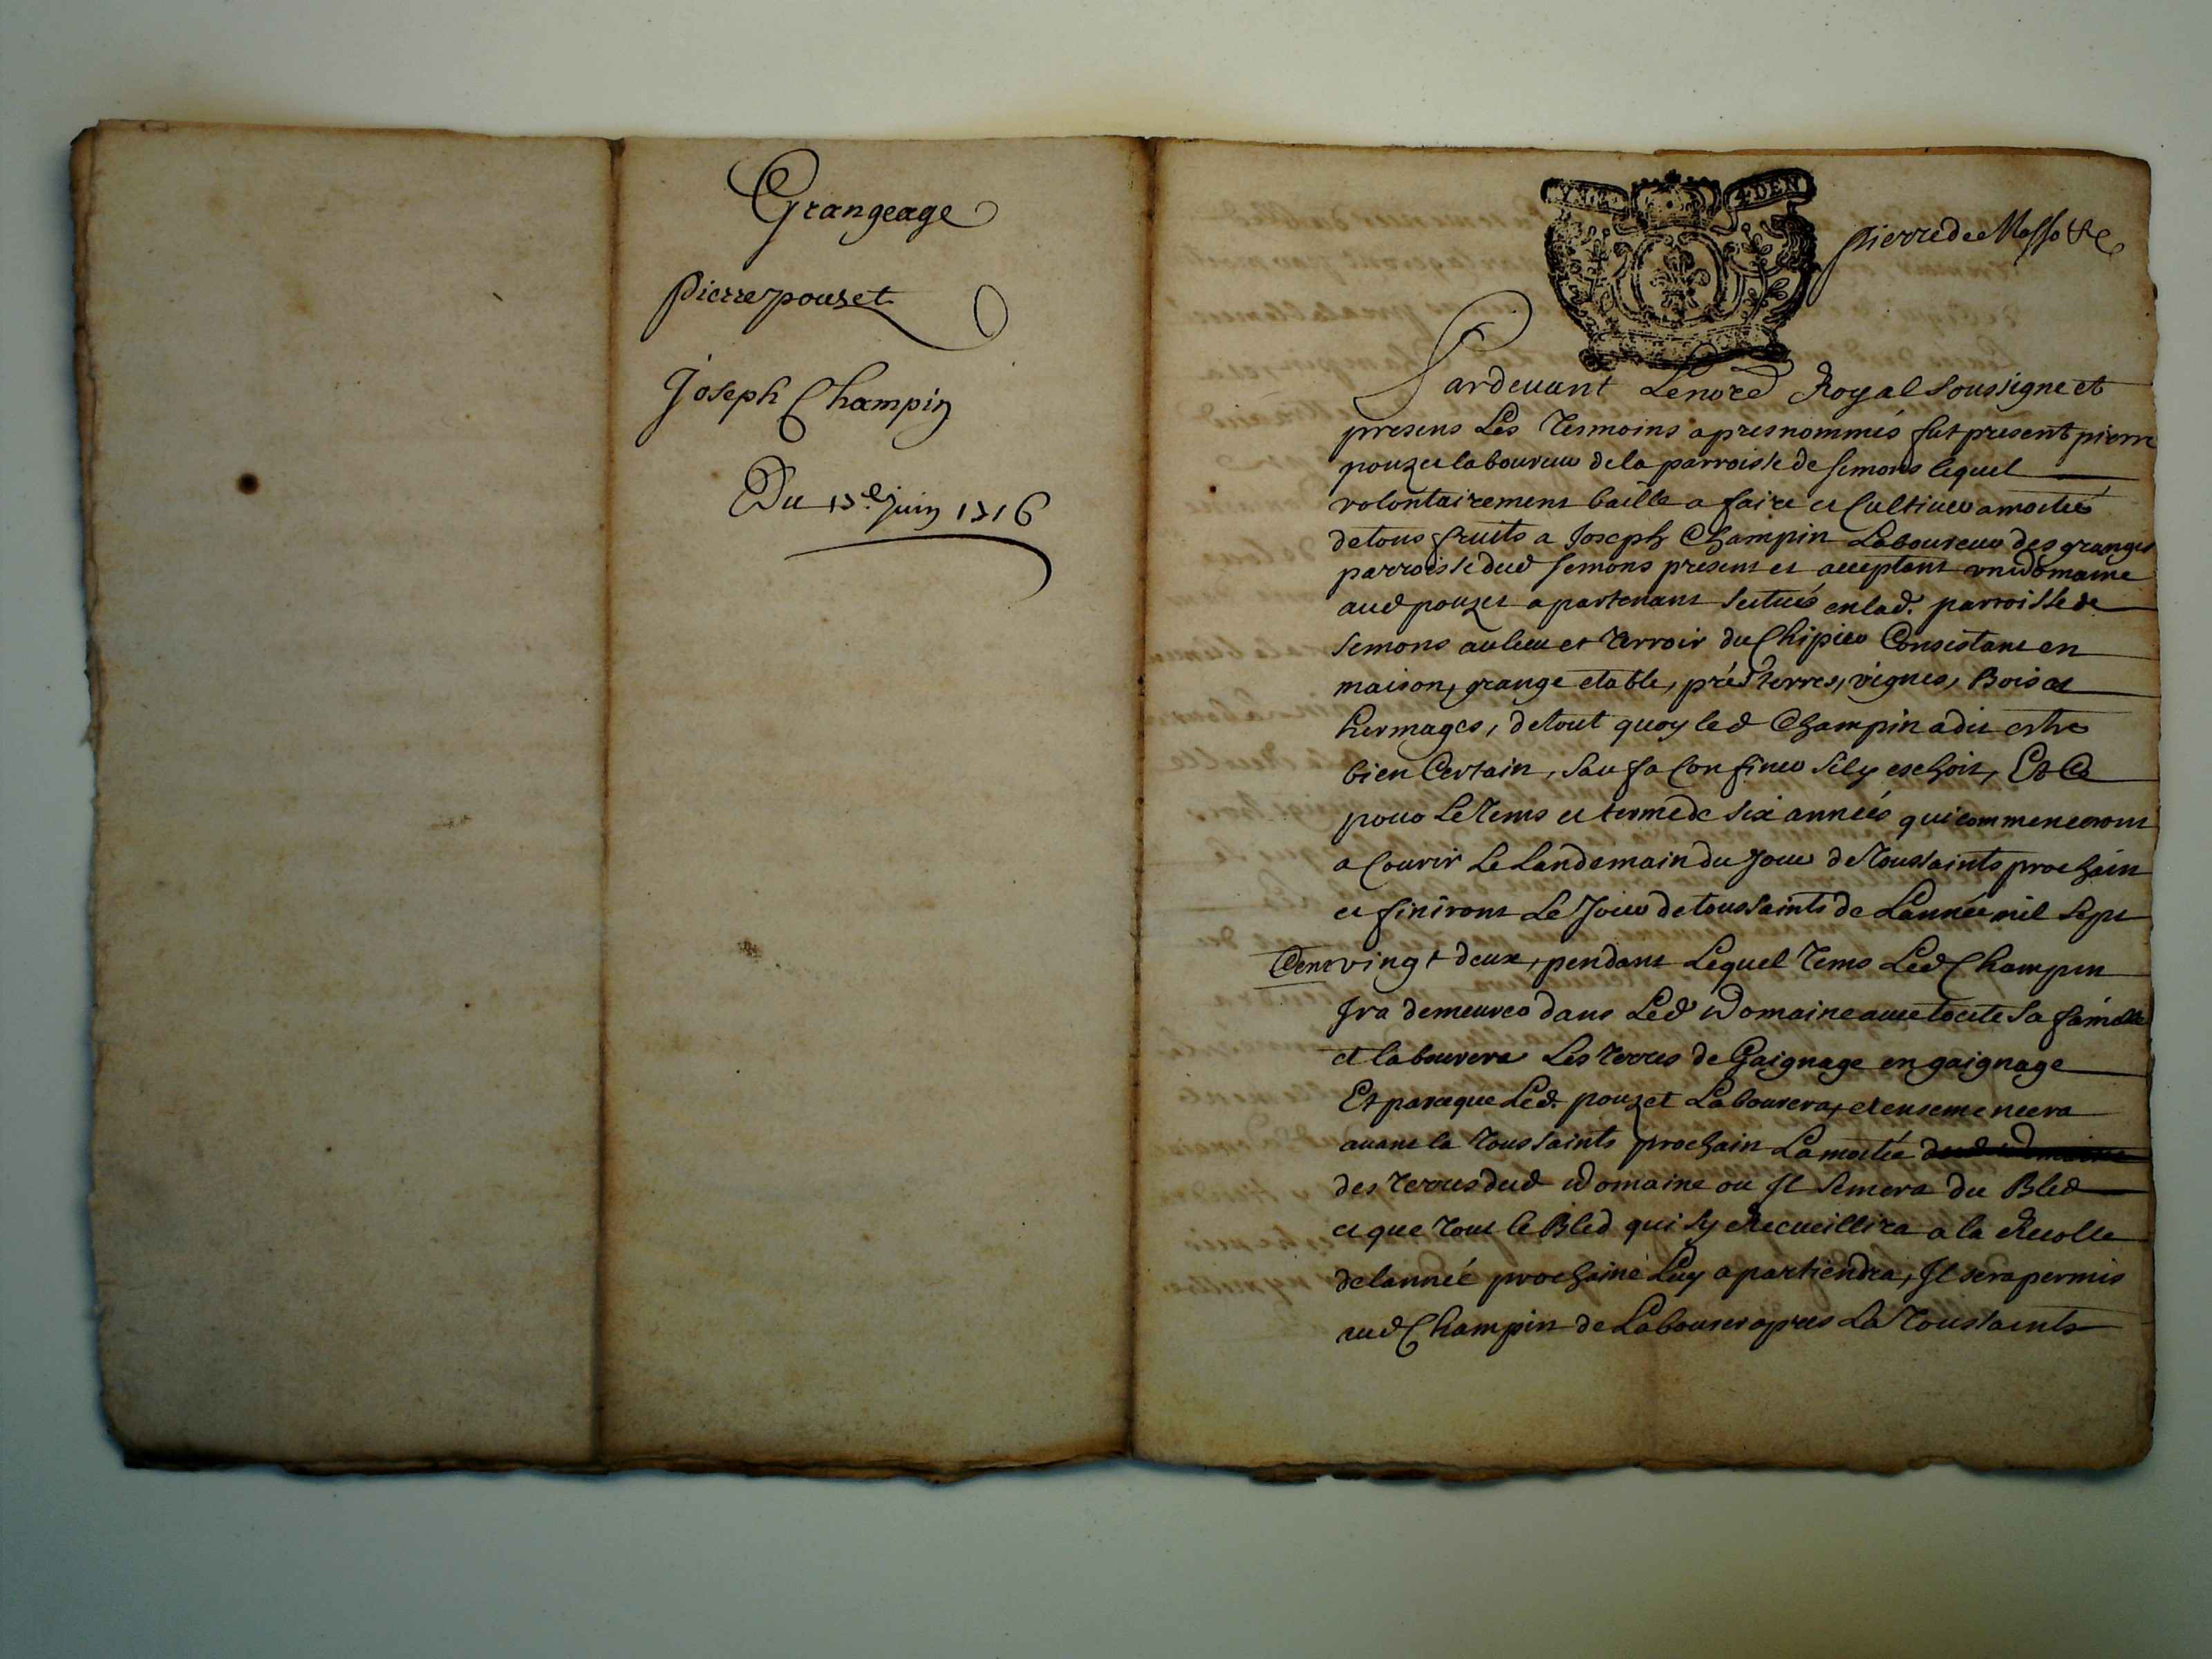 Grangeage
pierre pouzet
Joseph Champin
Du 13e Juin 1716
4 DEN
pierre de
Pardevant Le nore Royal soussigne et
presens Les Temoins apres nommés fut present pierre
pouzet laboureur de la parroisse de semons lequel
volontairement baille a faire et Cultiver a moitié
de tous fruits a Joseph Champin Laboureur des granges
parroisse dud semons present et acceptant un Domaine
aud pouzet apartenant scitué en lad. parroisse de
semons au lieu et Terroir du Chipier Consistant en
maison, grange etable, préd terres, vignes, Bois et
hermages, de tout quoy led Champin a dit estre
bien Certain, sauf a Confiner sil y eschoit, Et Ce
pour Le Tems et terme de six années qui commenceront
a Courir Le Landemain du Jour de Toussaints prochain
et finiront Le Jour de toussaints de Lannée mil sept
Cent vingt deux, pendant Lequel Tems Led Champin
Ira demeurer dans Led Domaine avec toute sa famille
et labourera Les Terres de Gaignage en gaignage
Et parceque Led. pouzet Labourera, et ensemencera
avant la Toussaints prochain La moitié dud Domaine
des Terres dud Domaine ou Il semera du Bled
et que Tout le Bled qui sy Recueillira a la Recolte
de lannée prochaine Luy apartiendra, Il sera permis
aud Champin de Labourer apres La Toussaints